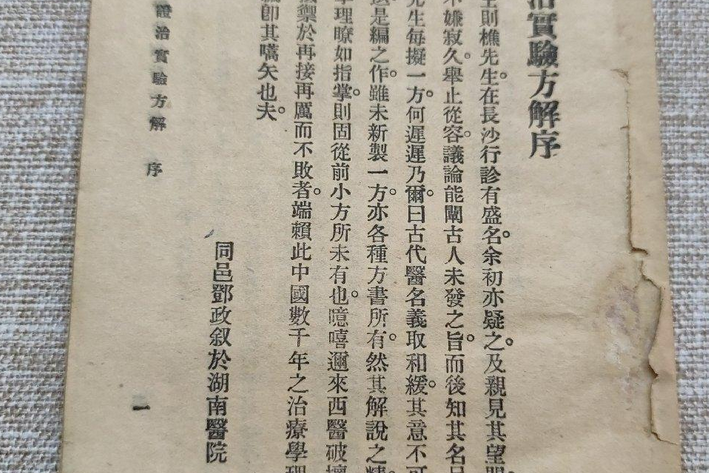 治實驗方解序
則樵先生在長沙行診有盛名。余初亦疑之。及親見其望
不嫌寂久。舉止從容。議論能闡古人未發之旨。而後知其名
先生每擬一方。何遲遲乃爾。曰古代醫名義取和緩。其意不可
是編之作。雖未新製一方。亦各種方書所有。然其解說之精
學理瞭如指掌。則固從前小方所未有也。噫嘻邇來西醫破壞
禦於再接再厲而不敗者。端賴此中國數千年之治療學理
卽其嚆矢也夫。
同邑鄧政叙於湖南醫院
證治實驗方解 序
一